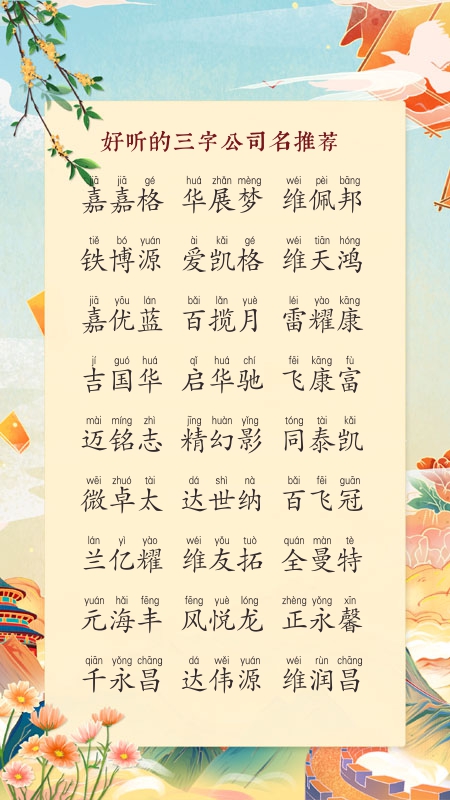 好听的三字公司名推荐
jiā jiā gé huá zhǎn mèng wéi pèi bāng
嘉嘉格 华展梦 维佩邦
tiě bó yuán ài kǎi gé wéi tiān hóng
铁博源 爱凯格 维天鸿
jiā yōu lán bǎi lǎn yuè léi yào kāng
嘉优蓝 百揽月 雷耀康
jí guó huá qǐ huá chí fēi kāng fù
吉国华 启华驰 飞康富
mài míng zhì jīng huàn yǐng tóng tài kǎi
迈铭志 精幻影 同泰凯
wēi zhuó tài dá shì nà bǎi fēi guān
微卓太 达世纳 百飞冠
lán yì yào wéi yǒu tuò quán màn tè
兰亿耀 维友拓 全曼特
yuán hǎi fēng fēng yuè lóng zhèng yǒng xīn
元海丰 风悦龙 正永馨
qiān yǒng chāng dá wěi yuán wéi rùn chāng
千永昌 达伟源 维润昌